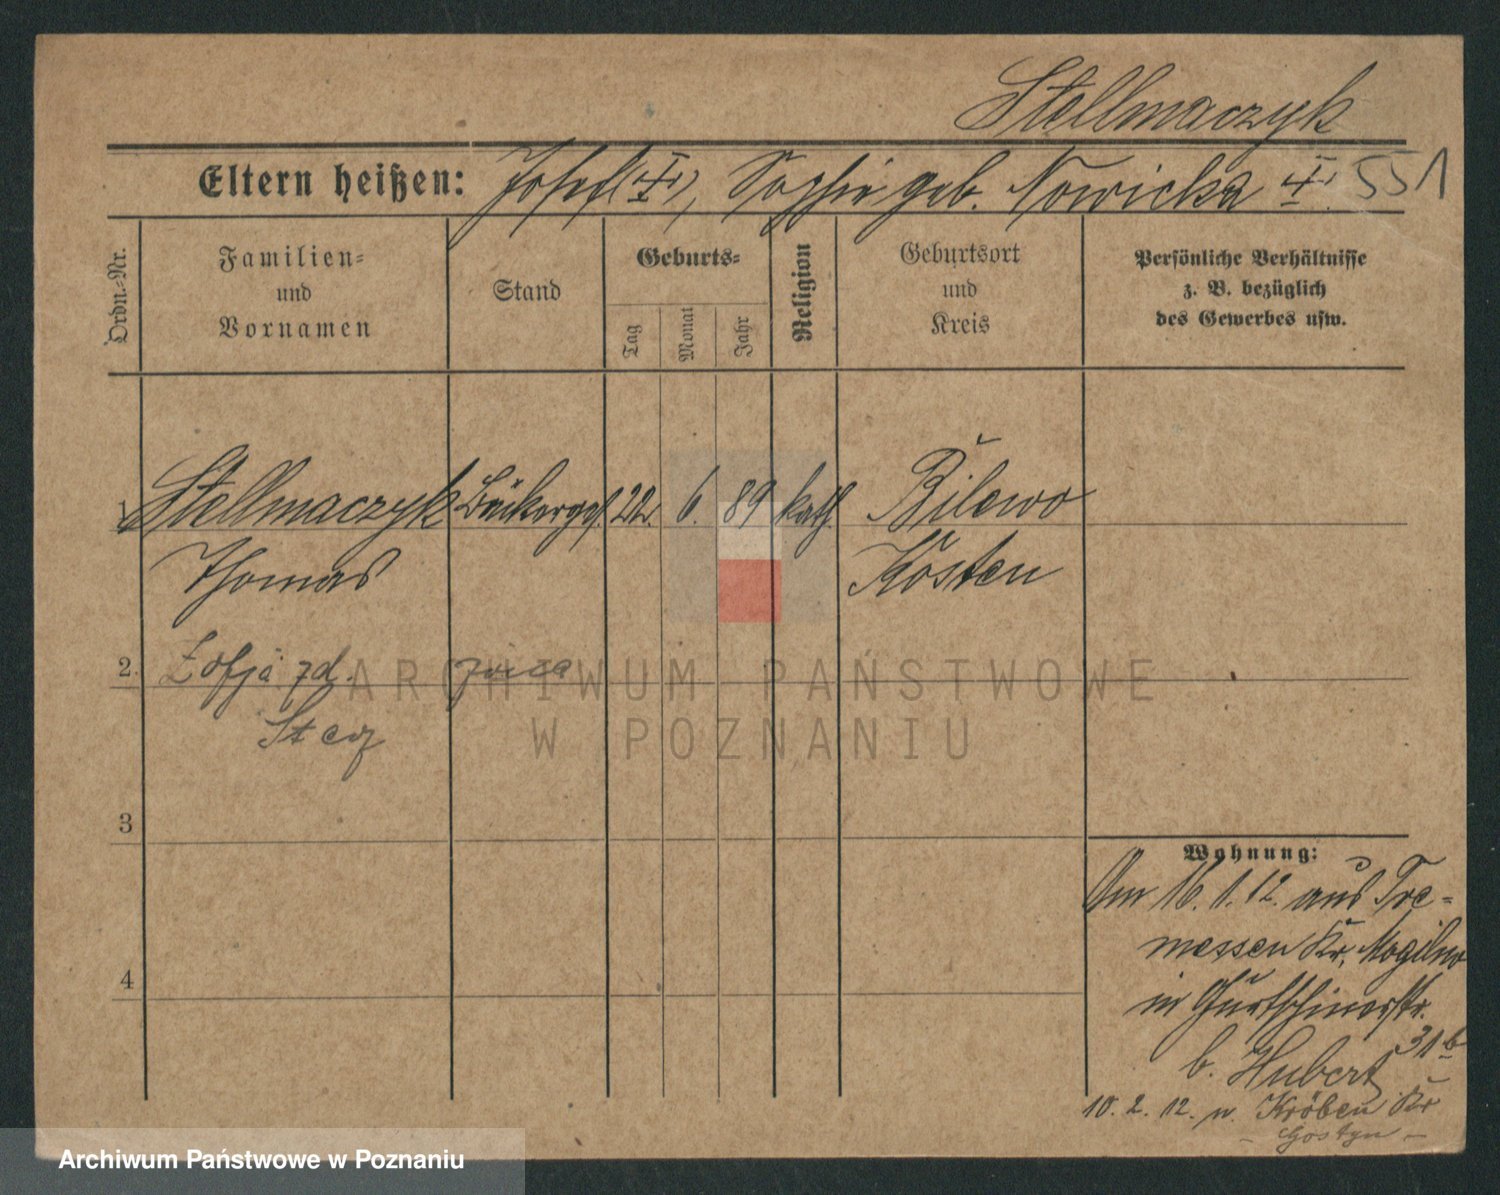 Stellmaczyk
Eltern heißen: Josef (†), Sophie geb. Nowicka † 551
Ordn.-Nr.
Familien-
und
Vornamen
Stand
Geburts-
Tag
Monat
Jahr
Religion
Geburtsort
und
Kreis
Persönliche Verhältnisse
z. B. bezüglich
des Gewerbes usw.
1 Stellmaczyk Bäckerges. 22. 6. 89 kath. Bilewo
Thomas Kosten
2. Zofja zd.
3
4
Wohnung:
Am 16.1.12. aus Tre-
messen Kr. Mogilno
in Gurtschinerstr.
31b
b. Hubert
10.2.12. n. Kröben Kr
Gostyn
ARCHIWUM PAŃSTWOWE
W POZNANIU
Archiwum Państwowe w Poznaniu